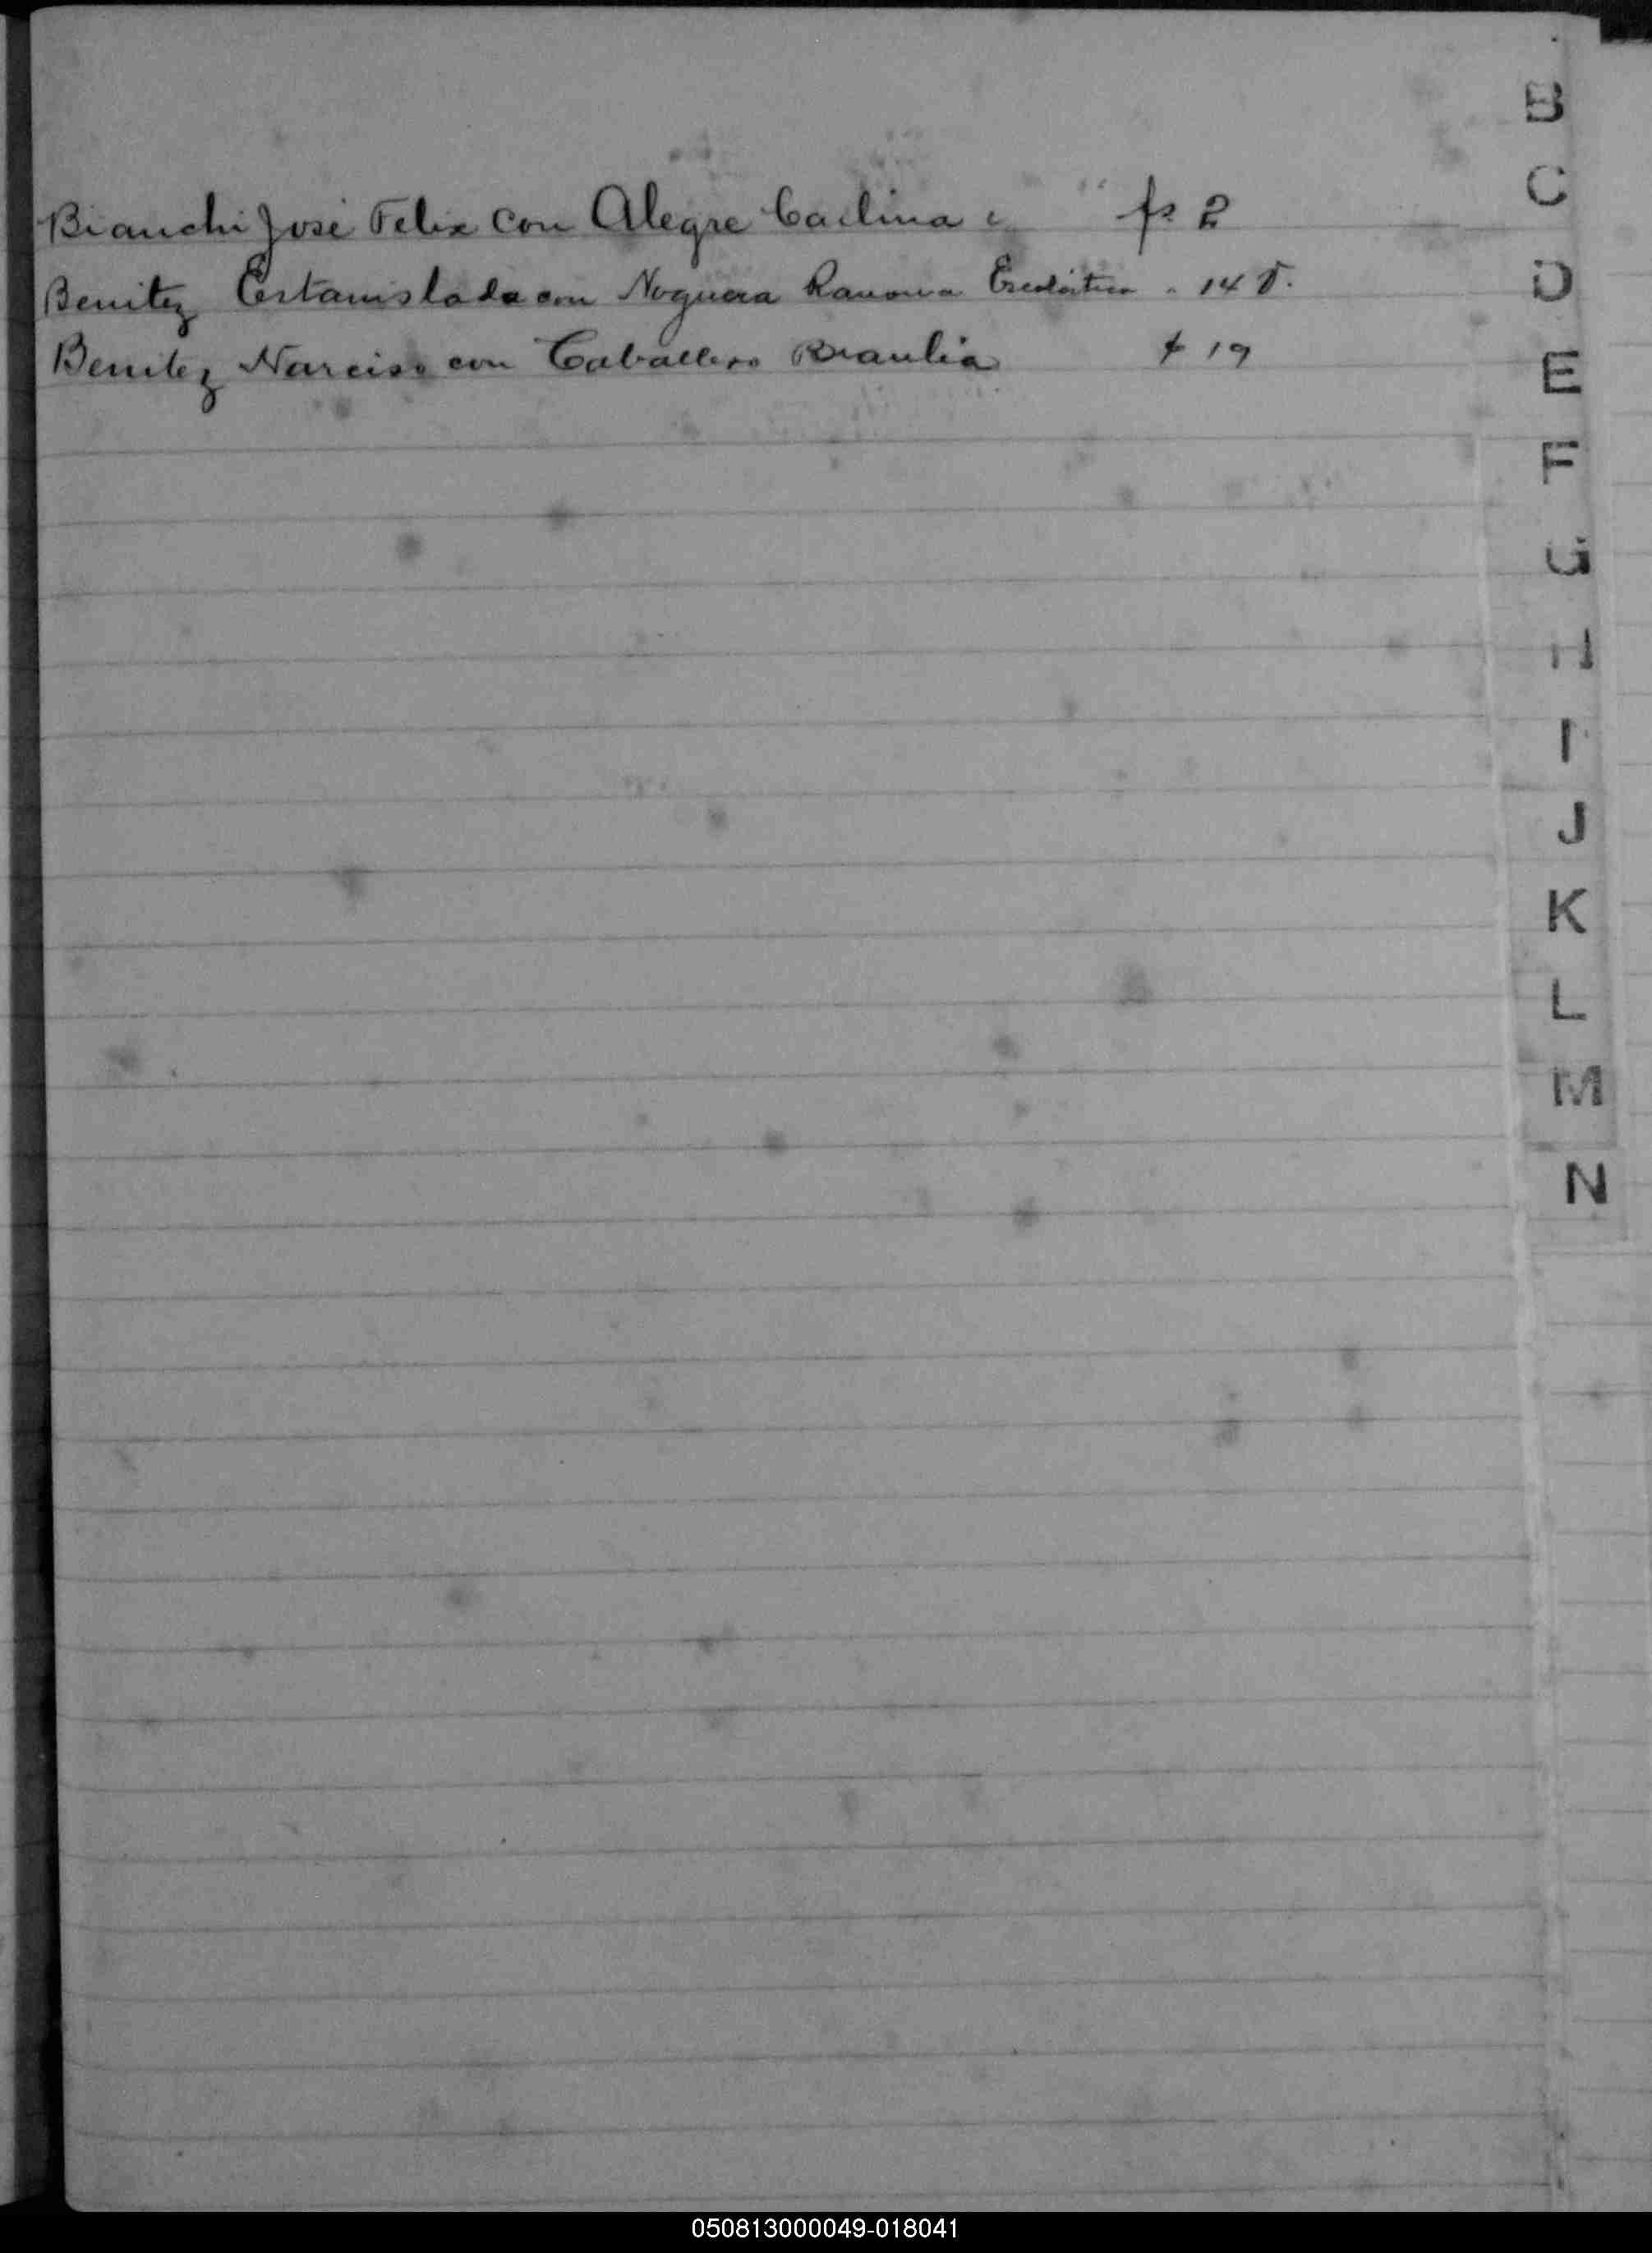 B
C
Bianchi José Felix con Alegre fs 2
D
Benitez Estanislada con Noguera Ramona 14
E
Benitez Narciso con Caballero Braulia 19
F
G
H
I
J
K
L
M
N
050813000049-018041